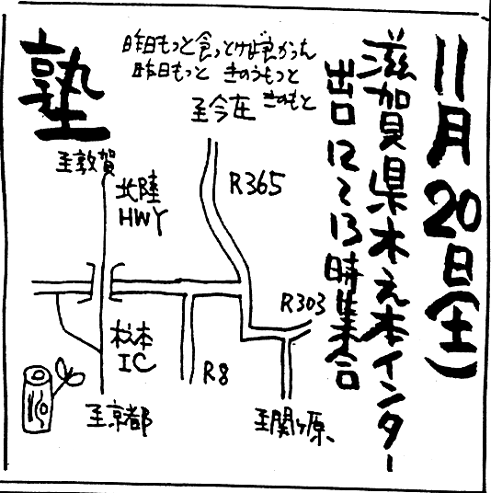 11月20日(土)
滋賀県木之本インター
出口にて13時集合
昨日もっと食っとけば良かった
昨日もっと きのうもっと
きのもと
塾
至今庄
至敦賀
北陸
HWY
R365
R303
木之本
IC
R8
至京都
至関ヶ原